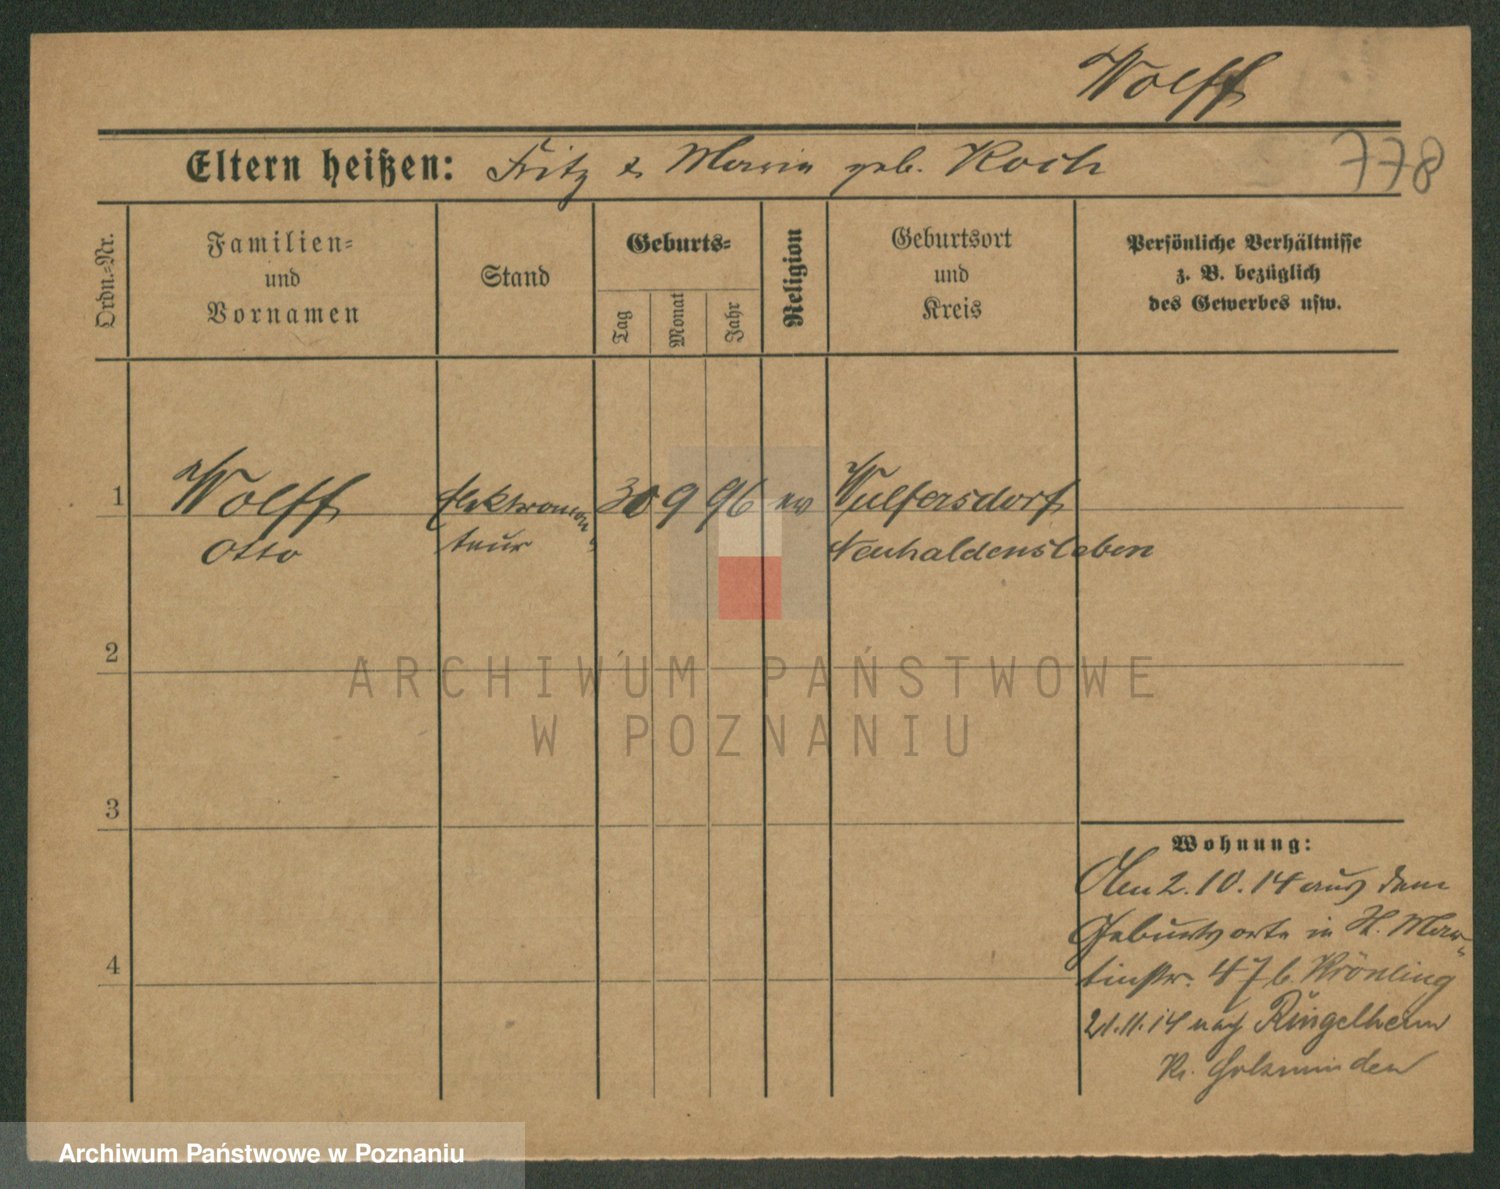 Wolff
Eltern heißen: Fritz & Maria geb. Koch
778
Ordn.=Nr.
Familien=
und
Vornamen
Stand
Geburts=
Tag
Monat
Jahr
Religion
Geburtsort
und
Kreis
Persönliche Verhältnisse
z. B. bezüglich
des Gewerbes usw.
1
Wolff
Otto
Elektromon
teur
30 9 96
ev
Wulfersdorf
Neuhaldensleben
2
3
4
Wohnung:
Am 2.10.14 aus dem
Geburtsorte in St. Mar-
tinstr. 47 b. Krönling
21.11.14 nach Ringelheim
Kr. Holzminden
ARCHIWUM PAŃSTWOWE
W POZNANIU
Archiwum Państwowe w Poznaniu